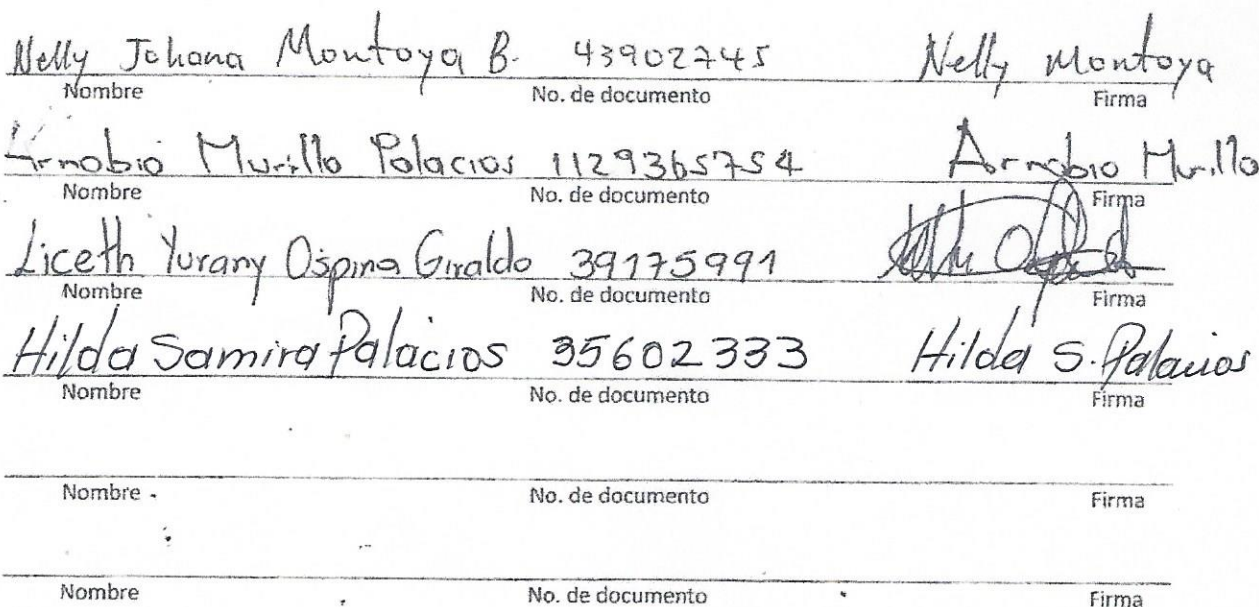 Nelly Johana Montoya B. 43902745 Nelly Montoya
Nombre No. de documento Firma
Arnobio Murillo Palacios 1129365754 Arnobio Murillo
Nombre No. de documento Firma
Liceth Yurany Ospina Giraldo 39175991
Nombre No. de documento Firma
Hilda Samira Palacios 35602333 Hilda S. Palacios
Nombre No. de documento Firma
Nombre No. de documento Firma
Nombre No. de documento Firma